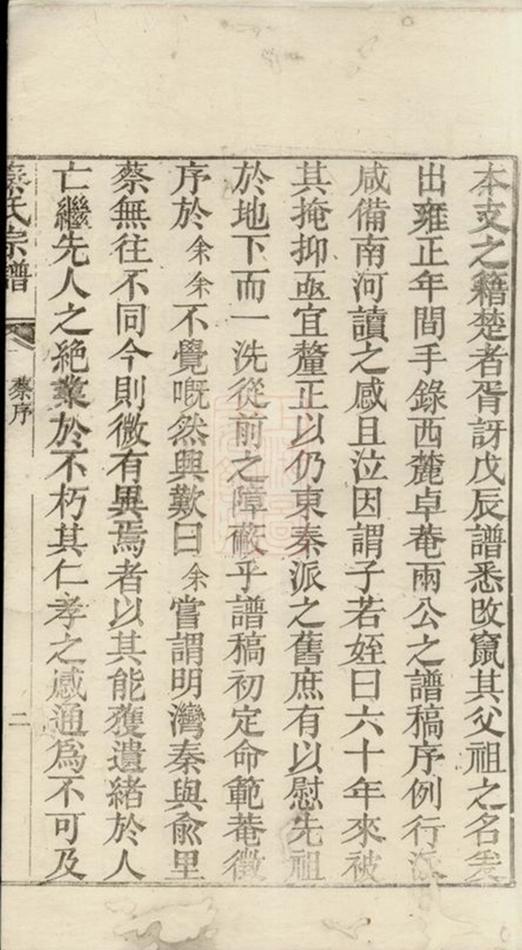 本支之籍楚者胥訝戊辰譜悉改竄其父祖之名爰
出雍正年間手錄西麓卓菴兩公之譜稿序例行派
咸備南河讀之感且泣因謂子若姪曰六十年來被
其掩抑亟宜釐正以仍東秦派之舊庶有以慰先祖
於地下而一洗從前之障蔽乎譜稿初定命範菴徵
序於余余不覺嘅然興歎曰余嘗謂明灣秦與俞里
蔡無往不同今則微有異焉者以其能獲遺緒於人
亡繼先人之絶業於不朽其仁孝之感通為不可及
氏宗譜
蔡序
二